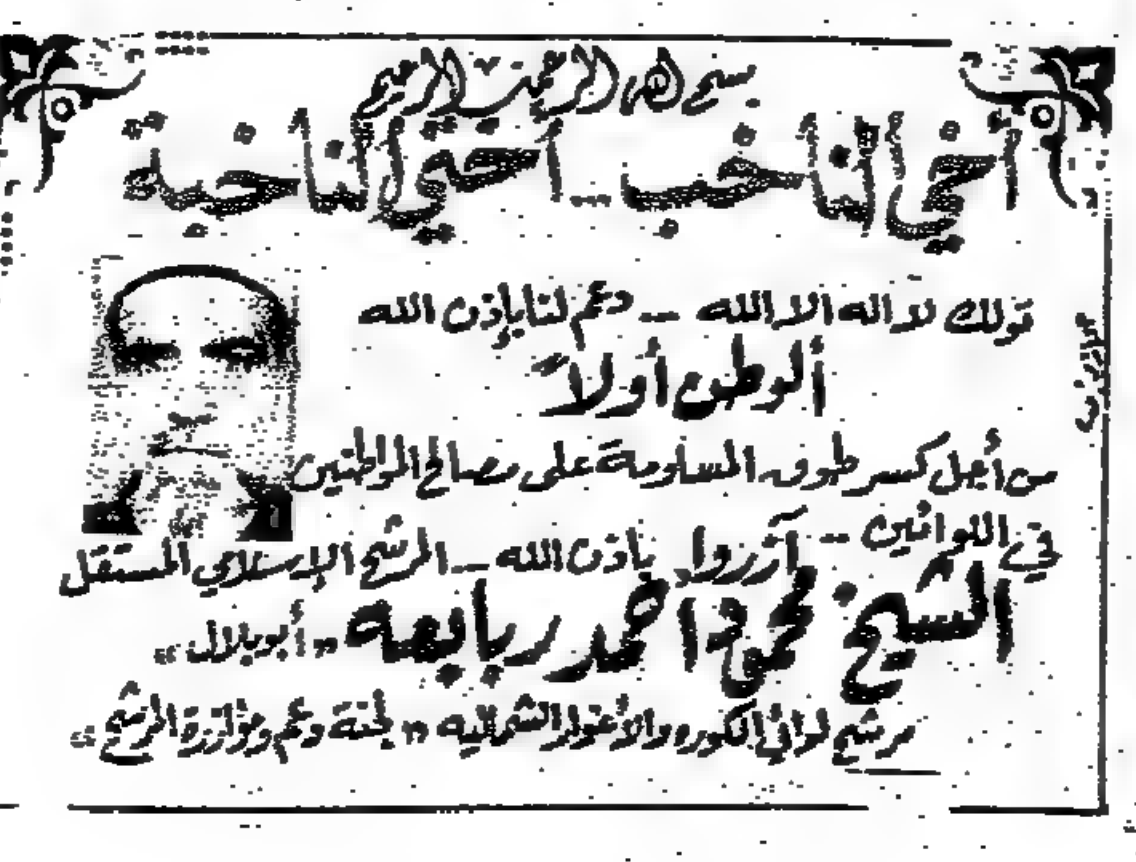 بسم الله الرحمن الرحيم
أخي الناخب ... أختي الناخبة
قولك لا اله الا الله -- دعم لنا بإذن الله
ألوطن أولاً
من أجل كسر طوق المساومة على مصالح المواطنين
في اللوائين -- آزروا باذن الله -- المرشح الإسلامي المستقل
الشيخ محمود احمد ربابعه "أبو بلال"
مرشح لوائي الكوره والأغوار الشماليه "لجنة دعم ومؤازرة المرشح"